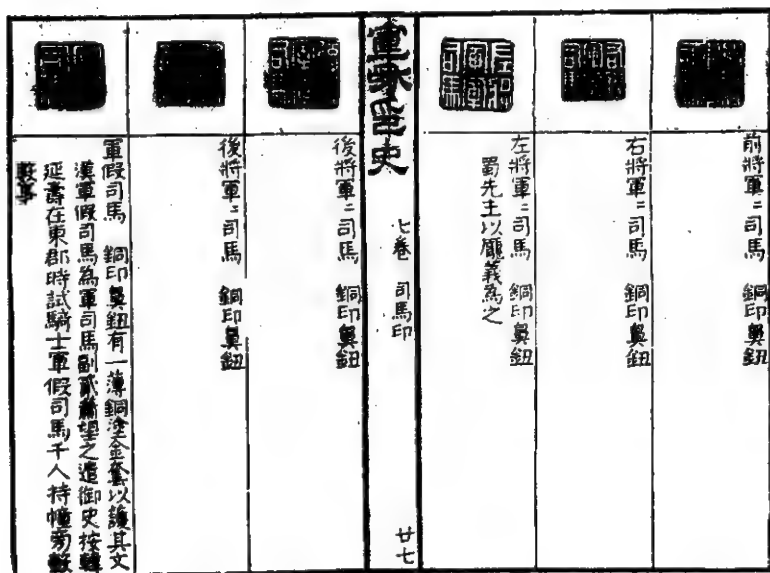 前將軍〻司馬　銅印鼻鈕
右將軍〻司馬　銅印鼻鈕
左將軍〻司馬　銅印鼻鈕
蜀先主以龐義為之
七卷　司馬印
廿七
後將軍〻司馬　銅印鼻鈕
後將軍〻司馬　銅印鼻鈕
軍假司馬　銅印鼻鈕有一薄銅塗金奩以護其文
漢軍假司馬為軍司馬副貳蕭望之遣御史按韓
延壽在東郡時試騎士軍假司馬千人持幢旁轂